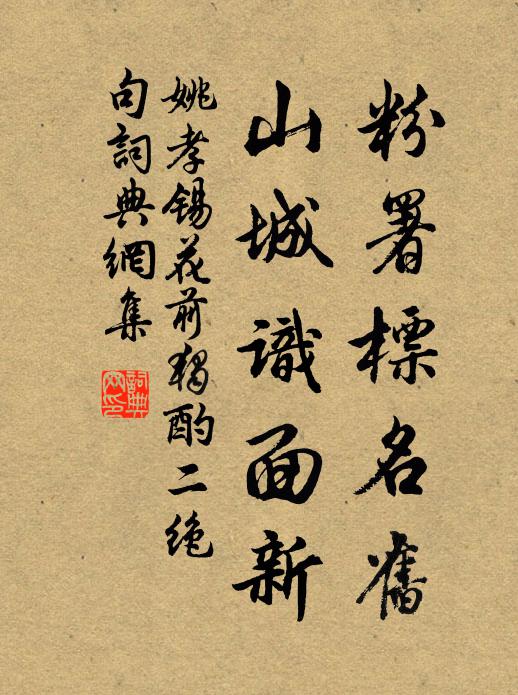 粉署標名舊
山城識面新
姚孝錫花前獨酌二絶
句詞典網集
詞典網印